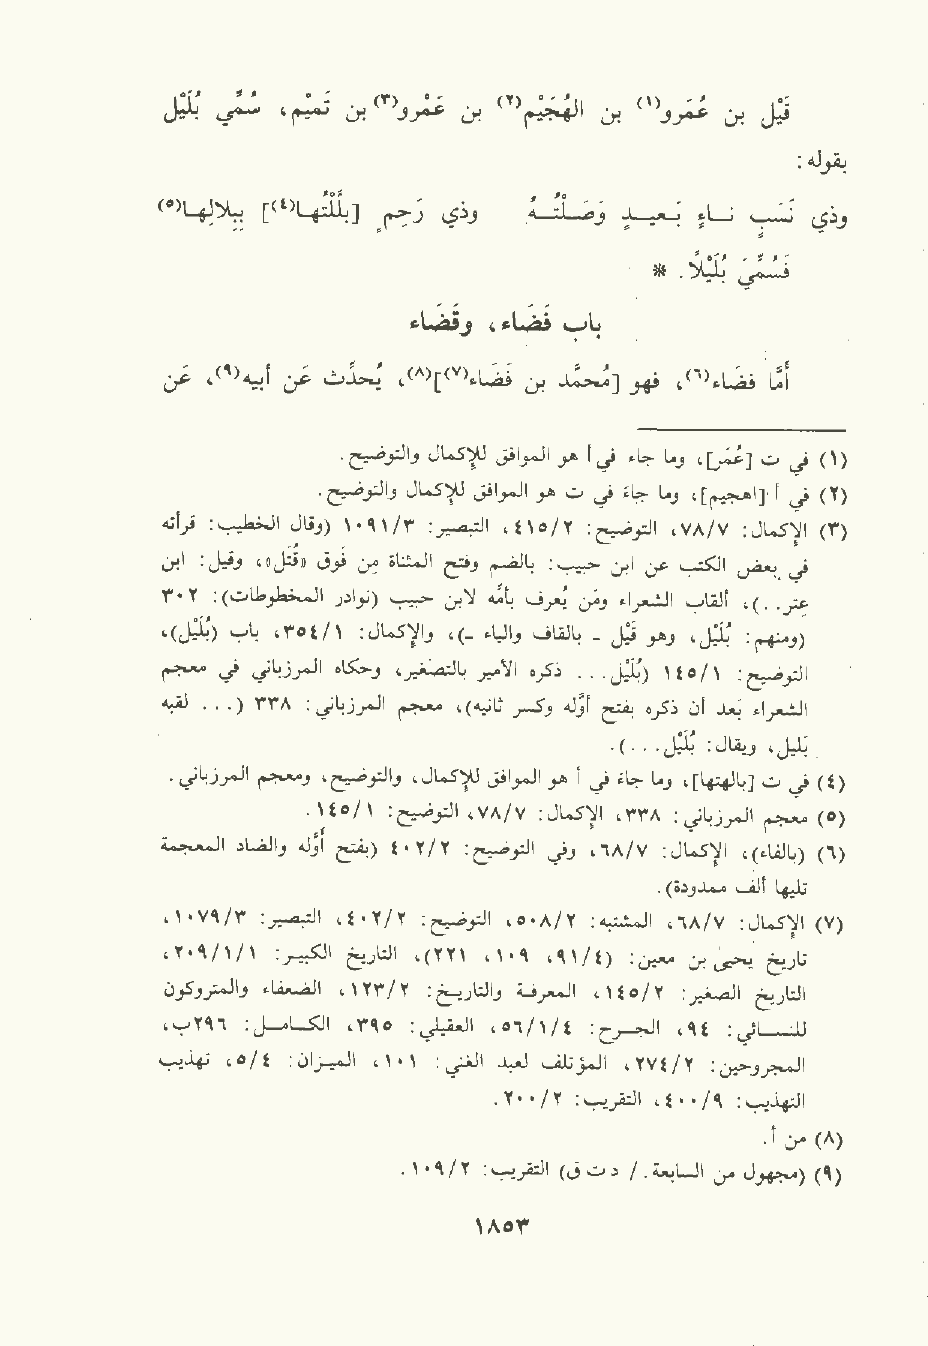 قَيْل بن عُمَرو(١) بن الهُجَيْم(٢) بن عَمْرو(٣) بن تَميْم، سُمِّي بُلَيْل
بقوله:
وذي نَسَبٍ نـاءٍ بَعـيـدٍ وَصَـلْتُـهُ وذي رَحِمٍ [بلَّلْتُها(٤)] بِبِلالِها(٥)
فَسُمِّيَ بُلَيْلاً. *
باب فَضَاء، وقَضَاء
أمَّا فضَاء(٦)، فهو [محمَّد بن فَضَاء(٧)](٨)، يُحدِّث عَن أبيه(٩)، عَن
(١) في ت [عُمَر]، وما جاء في أ هو الموافق للإكمال والتوضيح.
(٢) في أ [اهجيم]، وما جاء في ت هو الموافق للإكمال والتوضيح.
(٣) الإكمال: ٧٨/٧، التوضيح: ٤١٥/٢، التبصير: ١٠٩١/٣ (وقال الخطيب: قرأته
في بعض الكتب عن ابن حبيب: بالضم وفتح المثناة مِن فوق «قُتَل»، وقيل: ابن
عِتر..)، ألقاب الشعراء ومَن يُعرف بأمّه لابن حبيب (نوادر المخطوطات): ٣٠٢
(ومنهم: بُلَيْل، وهو قَيل - بالقاف والياء -)، والإكمال: ٣٥٤/١، باب (بُلَيل)،
التوضيح: ١٤٥/١ (بُلَيْل... ذكره الأمير بالتصغير، وحكاه المرزباني في معجم
الشعراء بَعد أن ذكره بفتح أوّله وكسر ثانيه)، معجم المرزباني: ٣٣٨ (... لقبه
بَليل، ويقال: بُلَيْل...).
(٤) في ت [بالهتها]، وما جاء في أ هو الموافق للإكمال، والتوضيح، ومعجم المرزباني.
(٥) معجم المرزباني: ٣٣٨، الإكمال: ٧٨/٧، التوضيح: ١٤٥/١.
(٦) (بالفاء)، الإكمال: ٦٨/٧، وفي التوضيح: ٤٠٢/٢ (بفتح أوّله والضاد المعجمة
تليها ألف ممدودة).
(٧) الإكمال: ٦٨/٧، المشتبه: ٥٠٨/٢، التوضيح: ٤٠٢/٢، التبصير: ١٠٧٩/٣،
تاريخ يحيىٰ بن معين: (٩١/٤، ١٠٩، ٢٢١)، التاريخ الكبير: ٢٠٩/١/١،
التاريخ الصغير: ١٤٥/٢، المعرفة والتاريخ: ١٢٣/٢، الضعفاء والمتروكون
للنسـائي: ٩٤، الجـرح: ٥٦/١/٤، العقيلي: ٣٩٥، الكـامـل: ٢٩٦ب،
المجروحين: ٢٧٤/٢، المؤتلف لعبد الغني: ١٠١، الميزان: ٥/٤، تهذيب
التهذيب: ٤٠٠/٩، التقريب: ٢٠٠/٢.
(٨) من أ.
(٩) (مجهول من السابعة./ د ت ق) التقريب: ١٠٩/٢.
١٨٥٣